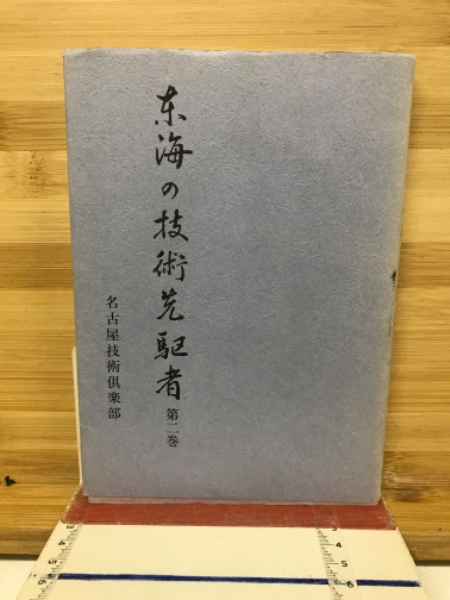 东海の技術先駆者
第二巻
名古屋技術倶楽部
3
4
5
6
3
4
5
6